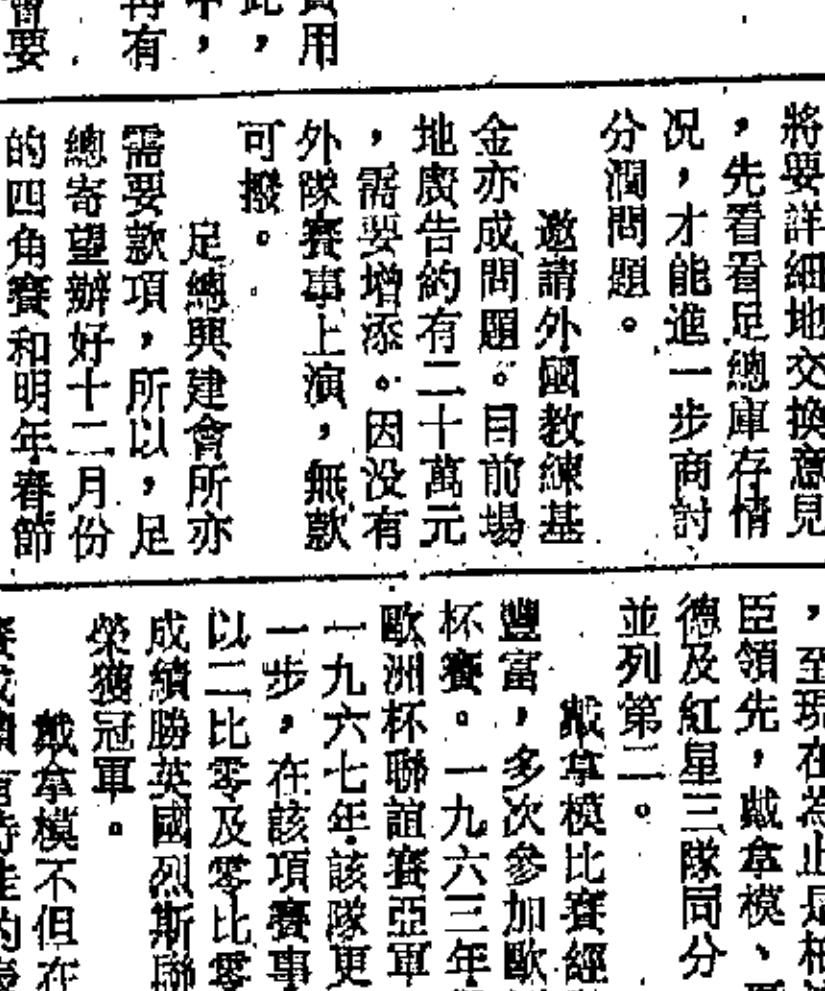 用
此，
中，
再有
會要
將要詳細地交換意見
，先看看足總庫存情
况，才能進一步商討
分潤問題。
邀請外國教練基
金亦成問題。目前場
地廣告約有二十萬元
，需要增添。因没有
外隊賽事上演，無款
可撥。
足總興建會所亦
需要款項，所以，足
總寄望辦好十二月份
的四角賽和明年春節
，至現在為止是柏
臣領先，戴拿模、
德及紅星三隊同分
並列第二。
戴拿模比賽經
豐富，多次參加歐
杯賽。一九六三年
歐洲杯聯誼賽亞軍
一九六七年該隊更
一步，在該項賽事
以二比零及零比零
成績勝英國烈斯聯
榮獲冠軍。
戴拿模不但在